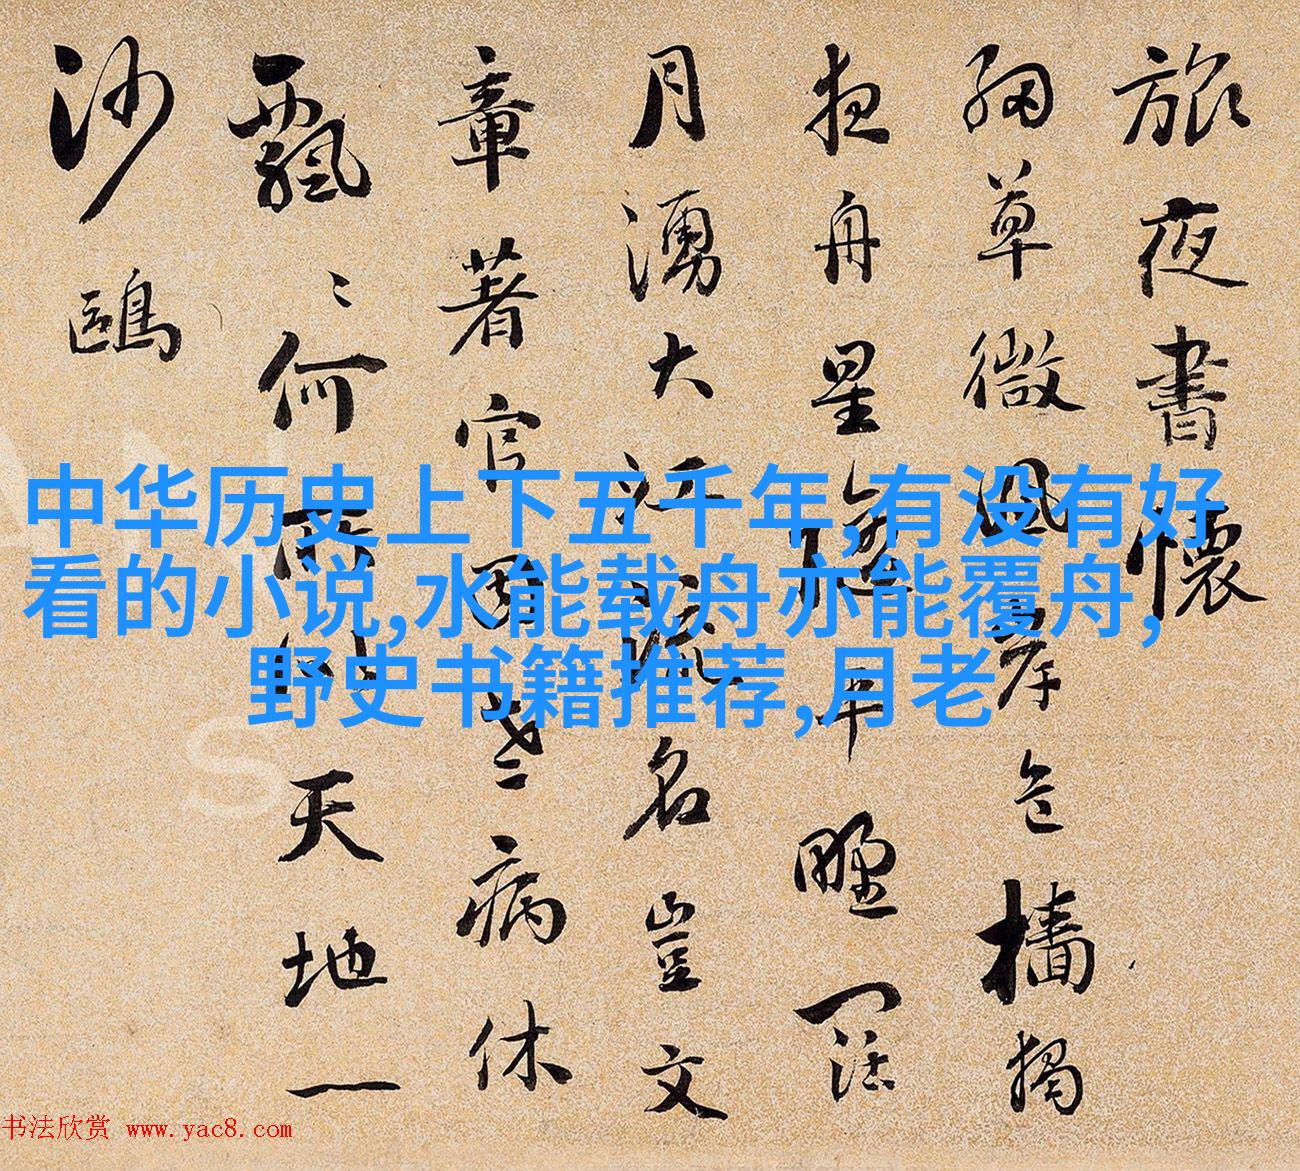 旅夜書懷
細草微風岸危檣獨
夜舟星隨平野闊
月湧大江流名豈文
章著官因老病休
飄〻何所似天地一
沙鷗
中华历史上下五千年,有没有好
看的小说,水能载舟亦能覆舟,
野史书籍推荐,月老
书法欣赏 www.yac8.com